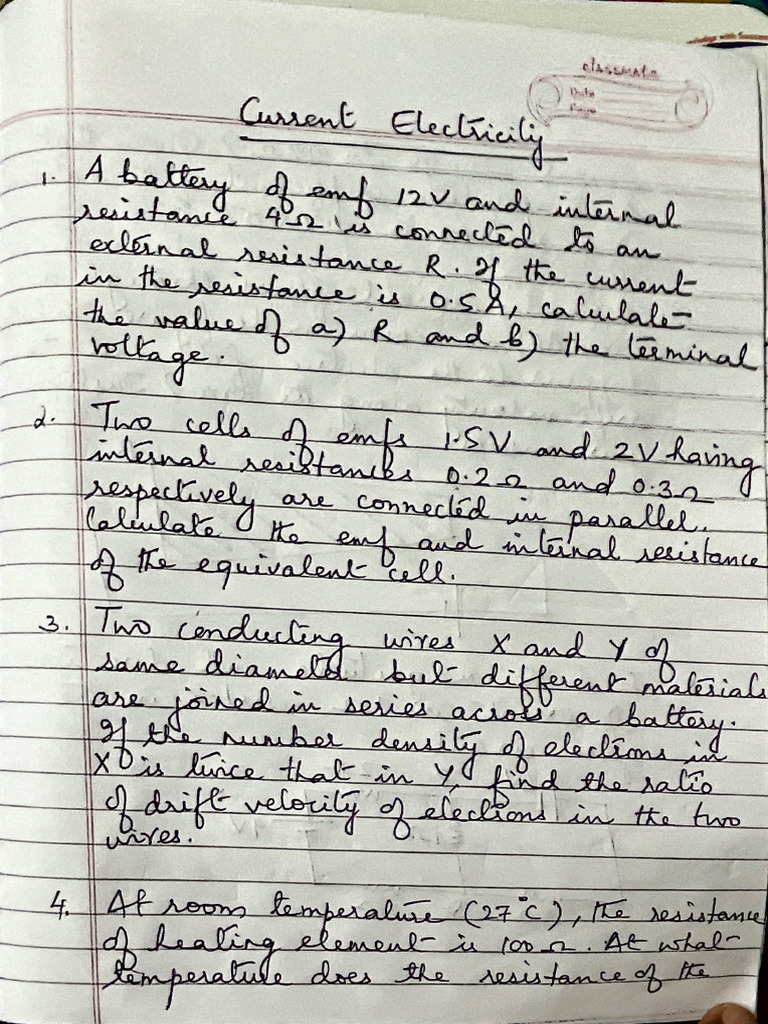 classmate
Date
Page
Current Electricity
1. A battery of emf 12V and internal
resistance 4Ω is connected to an
external resistance R. If the current
in the resistance is 0.5A, calculate
the value of a) R and b) the terminal
voltage.
2. Two cells of emfs 1.5V and 2V having
internal resistances 0.2Ω and 0.3Ω
respectively are connected in parallel.
Calculate the emf and internal resistance
of the equivalent cell.
3. Two conducting wires X and Y of
same diameter but different materials
are joined in series across a battery.
If the number density of electrons in
X is twice that in Y, find the ratio
of drift velocity of electrons in the two
wires.
4. At room temperature (27°C), the resistance
of heating element is 100Ω. At what
temperature does the resistance of the